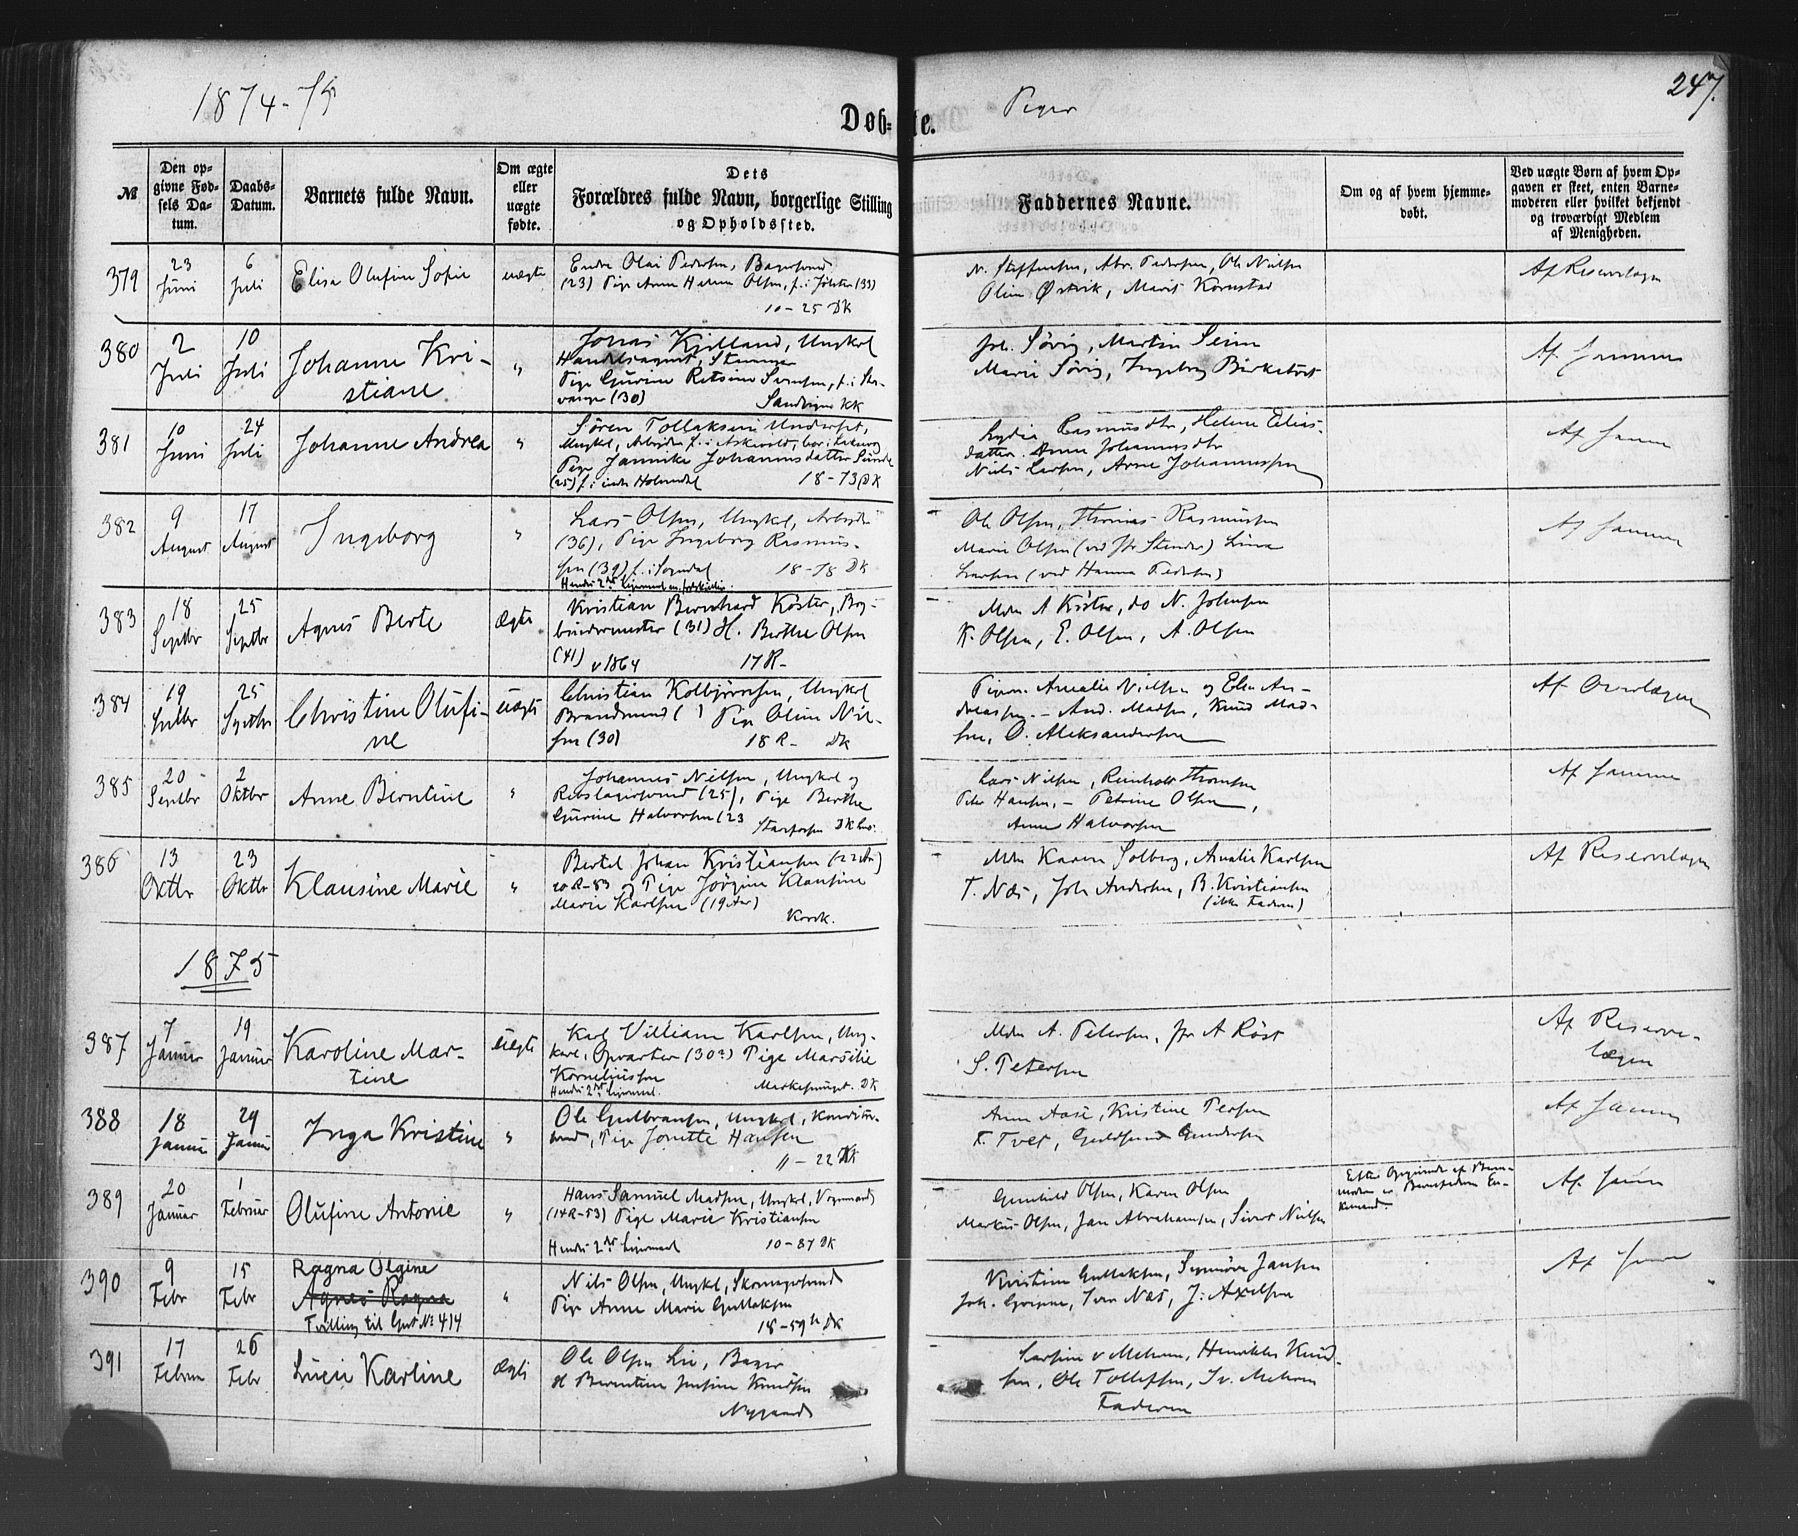 1874-75
Døbte.
Piger
247.
№
Den opgivne Fødsels Datum.
Daabs-Datum.
Barnets fulde Navn.
Om ægte eller uægte fødte.
Dets Forældres fulde Navn, borgerlige Stilling og Opholdssted.
Faddernes Navne.
Om og af hvem hjemmedøbt.
Ved uægte Børn af hvem Opgaven er skeet, enten Barnemoderen eller hvilket bekjendt og troværdigt Medlem af Menigheden.
379
23 Juni
6 Juli
Elisa Olufine Sofie
uægte
Endre Olai Pedersen,
(23) Pige Anne Helene Olsen, f. i Jølster (33)
10-25 DK
N. Steffensen, Abr. Pedersen, Ole Nielsen
Oline Østvik, Marit Kornstad
Af Reservelægen
380
2 Juli
10 Juli
Johanne Kri-
stiane
"
Jonas Kjelland, Ungkrl
Handelsagent, Stavanger
Pige Gurine Severine f. i Sta-
vanger (30) Sandvigen KK
Joh. Sørvig, Martin Seim
Marie Sørvig, Ingeborg Birketvet
Af Samme
381
10 Juni
24 Juli
Johanne Andrea
"
Søren Tollaksen
Ungkrl, Arbeider f. i Askevold, bor i
Pige Jannike Johannesdatter Sunde
(25) f. i 18-73 DK
Lydia Rasmusdtr, Helene Elias-
datter. Anne Johannesdtr
Niels Larsen, Arne Johannessen
Af Samme
382
9 August
17 August
Ingeborg
"
Lars Olsen, Ungkrl, Arbeider
(36), Pige Ingeborg Rasmus-
sen (39) f. i Sogndal 18-78 DK
Hendes 2det Leiermaal
Ole Olsen, Thomas Rasmussen
Marie Olsen (ved Lina
Larsen (ved Hanna Pedersen)
Af Samme
383
18 Septbr
25 Septbr
Agnes Berte
Ægte
Kristian Bernhard Köster, Bog-
bindermester (31) H. Berthe Olsen
(41) v 1864 17 R-
Mdm A Köster, do N. Johnsen
K. Olsen, E. Olsen, A. Olsen
384
19 Septbr
25 Septbr
Christine Olufi-
ne
uægte
Christian Kolbjørnsen, Ungkrl
Brandmand ( ) Pige Oline Niel-
sen (30) 18 R- DK
Pigerne Amalie Nielsen og Elen An-
dreassen. - And. Madsen, Knud Mad-
sen, O. Aleksandersen
Af Overlægen
385
20 Septbr
2 Oktbr
Anne Berntine
"
Johannes Nilsen, Ungkrl og
Rebslagersvend (25), Pige Berthe
Gurine Halvorsen (23
DK
Lars Nilsen, Reinholt Thomsen
Peter Hansen, - Petrine Olsen,
Anna Halvorsen
Af Samme
386
13 Oktbr
23 Oktbr
Klausine Marie
"
Bertel Johan Kristiansen (22 Ar)
20 R-83 Pige Jørgine Klausine
Marie Karlsen (19 Aar)
Korsk.
Mdm Karen Solberg, Amalie Karlsen
T. Næs, Joh Andersen, B. Kristiansen
(ikke Faderen)
Af Reservelægen
1875
387
7 Januar
19 Januar
Karoline Mar-
tine
uægte
Karl Villiam Karlsen, Ung-
karl, Opvarter (30?) Pige Marsilie
Korneliussen
Hendes 2det Leiermaal. DK
Mdm A. Petersen, Jfr A Röst
S. Petersen
Af Reserve-
lægen
388
18 Januar
29 Januar
Inga Kristine
"
Ole Gulbransen, Ungkrl, Konditor-
svend, Pige Jonette Hansen
11-22 DK
Anna Aase, Kristine Persen
T. Tvet, Gundersen
Af Samme
389
20 Januar
1 Februar
Olufine Antonie
"
Hans Samuel Madsen, Ungkrl, Vognmand
(14 R-53) Pige Marie Kristiansen
Hendes 2det Leiermaal 10-87 DK
Gunhild Olsen, Karen Olsen
Markus Olsen, Jan Abrahamsen, Sivert Nielsen
Efter Opgivende af Barne-
moderen er Barnefaderen En-
kemand.
Af Samme
390
9 Febr
15 Febr
Ragna Olgine
Agnes Ragna
Tvilling til Gut No 414
"
Nils Olsen, Ungkrl, Skomagersvend
Pige Anne Marie Gullaksen
18-59 b DK
Kristine Gullaksen, Synnøve Jansen
Joh. Iver Næs, J. Axelsen
Af Samme
391
17 Februar
26 Febr
Lucie Karline
Ægte
Ole Olsen Lie, Bager
H Berentine Josfine Knudsen
Nygaard
Larsine v Mehren, Henrikke Knud-
sen, Ole Tollefsen, Iv. Mehren
Faderen